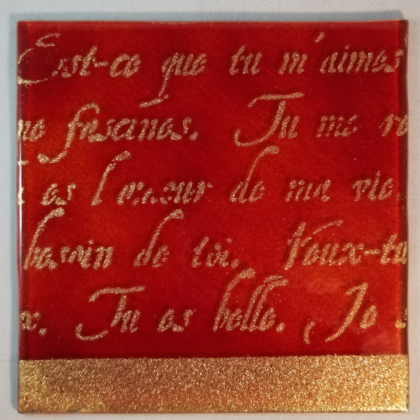 Est-ce que tu m'aimes
me fascines. Tu me re
es l'amour de ma vie
besoin de toi. Veux-tu
x. Tu es belle. Je